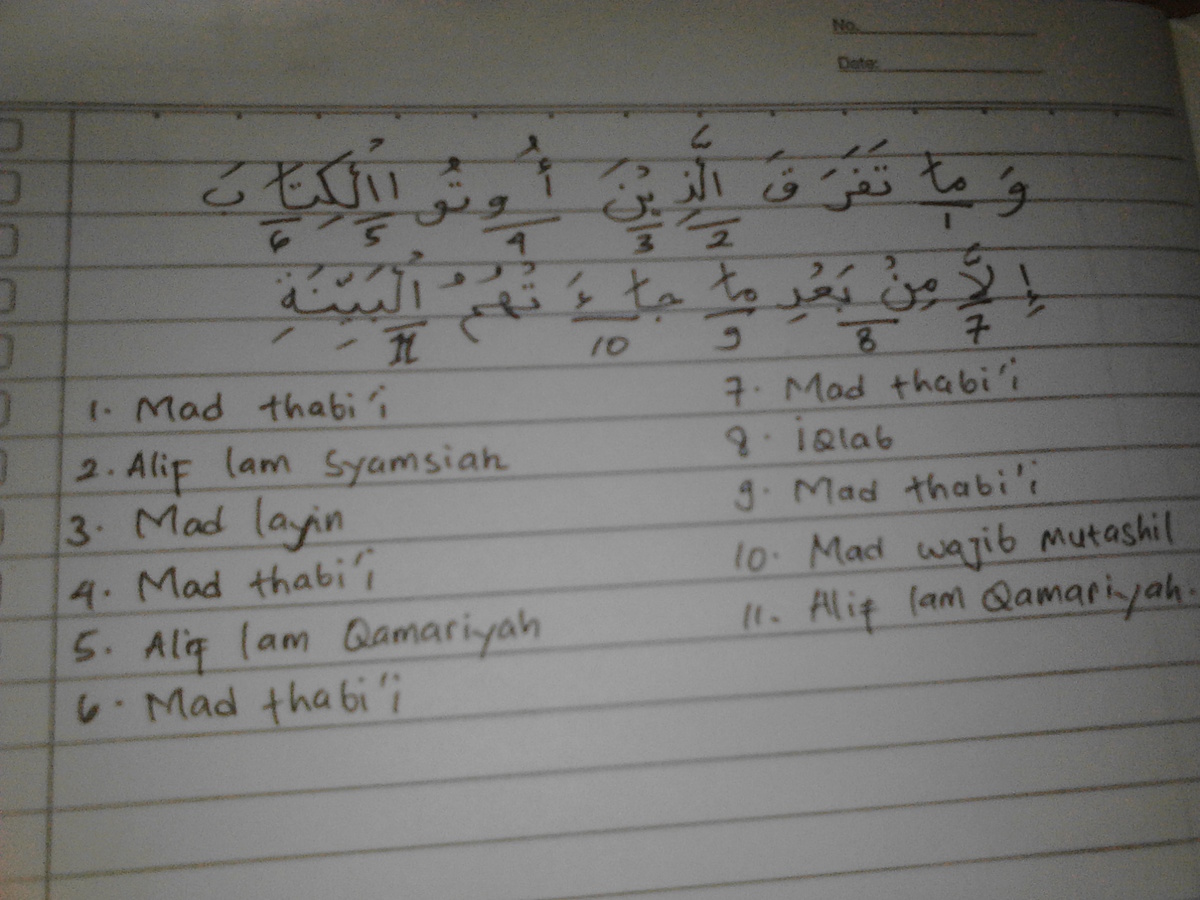 No.
Date:
وَ مَا تَفَرَّ قَ الَّذِيْنَ أُوتُو االْكِتَا بَ
6 5 4 3 2 1
إِلاَّ مِنْ بَعْدِ مَا جَا ءَ تْهُمُ الْبَيِّنَةِ
11 10 9 8 7
1. Mad thabi'i
2. Alif lam Syamsiah
3. Mad layin
4. Mad thabi'i
5. Alif lam Qamariyah
6. Mad thabi'i
7. Mad thabi'i
8. iqlab
9. Mad thabi'i
10. Mad wajib mutashil
11. Alif lam Qamariyah.